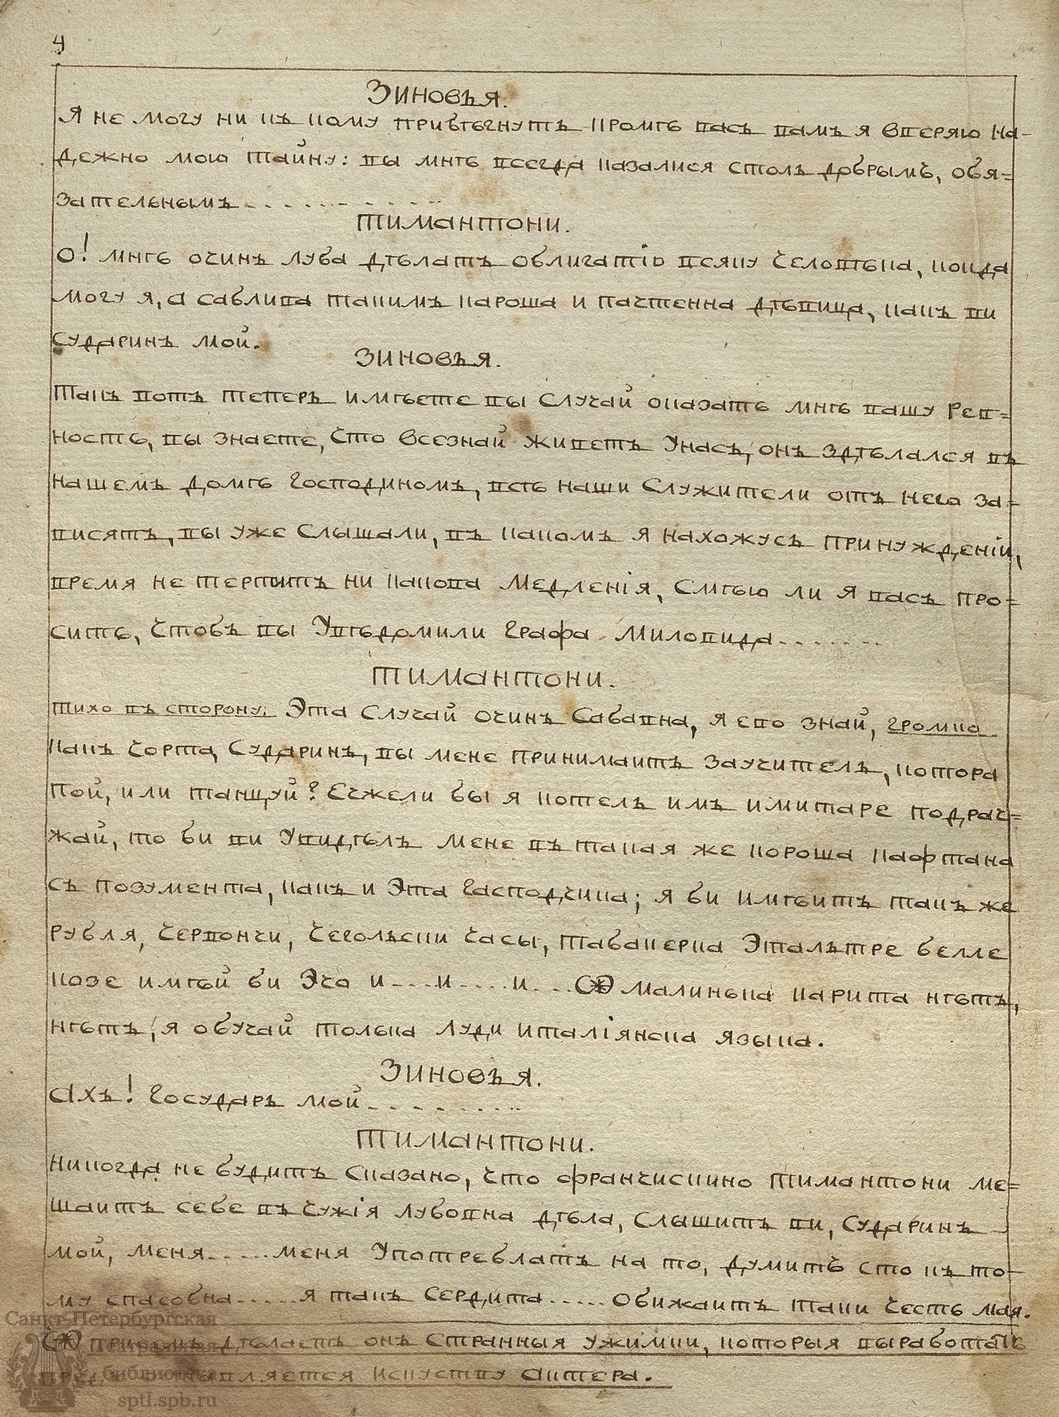 4
Зиновъя.
Я не могу ни къ кому прибѣгнуть кромѣ васъ вамъ я вперяю на-
дежно мою тайну: вы мнѣ всегда казалися столь добрымъ, обя=
зательнымъ - - - - - - - - - -
Тимантони.
О! мнѣ очинъ луба дѣлатъ облигатіо всяку человѣка, когда
могу я, а саблива такимъ кароша и пачтенна дѣвица, какъ ви
сударинъ мой.
Зиновъя.
Такъ вотъ теперъ имѣете вы случай оказать мнѣ вашу рев=
ность, вы знаете, что Всезнай живетъ Унасъ, онъ здѣлался въ
нашемъ домѣ господиномъ, всѣ наши служители отъ него за=
висятъ, вы уже слышали, въ какомъ я нахожусъ принужденіи,
время не терпитъ ни какова медленія, смѣю ли я васъ про=
сить, чтобъ вы Увѣдомили графа Миловида - - - - - - -
Тимантони.
тихо въ сторону: Эта случай очинъ сабавна, я ево знай, громко
какъ чорта, сударинъ, вы мене принимаитъ заучителъ, котора
пой, или танцуй? Ежели бы я котелъ имъ имитаре подрач=
жай, то би ви Увидѣлъ мене въ такая же короша кафтана
съ позумента, какъ и Эта гасподчика; я би имѣитъ такъ же
рубля, червончи, чегольски часы, табакерка Эталътре белле
козе имѣй би Эчо и - - - - и - - - - и - - - - малинька карита нѣтъ,
нѣтъ, я обучай толька луди италіянска языка.
Зиновъя.
Ахъ! государь мой - - - - - - - - -
Тимантони.
никогда не будитъ сказано, что франчискино тимантони ме=
шаитъ себе въ чужія лубовна дѣла, слышитъ ви, сударинъ
мой, меня - - - - - меня Употреблатъ на то, думить сто къ то-
му способна - - - - - я такъ сердита - - - - - обижаитъ таки честь мая.
при семъ дѣлаетъ онъ странныя ужимки, которыя выработать
искуству актера.
Санкт-Петербургская
театральная
библиотека
sptl.spb.ru